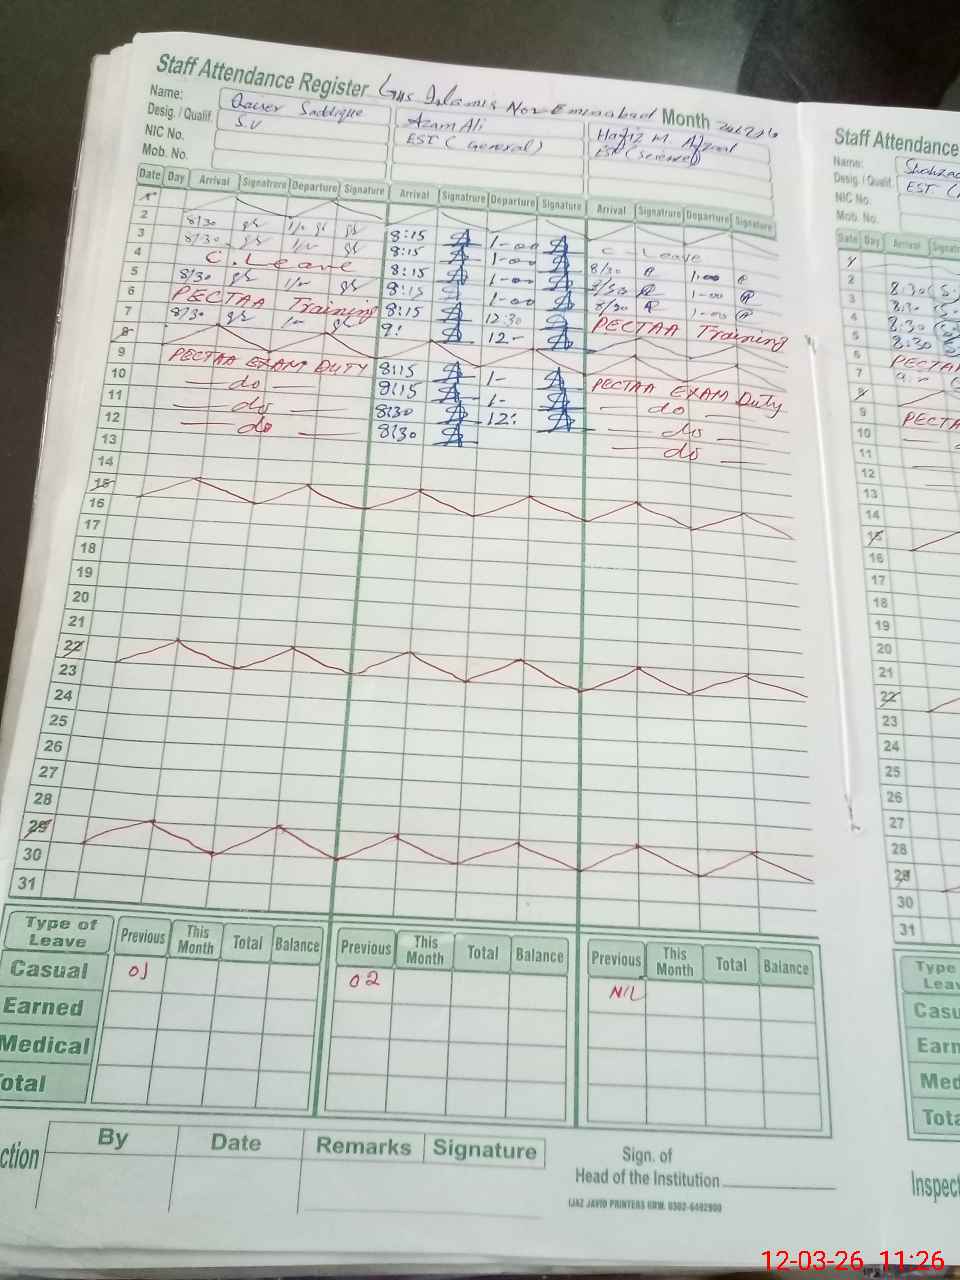 Staff Attendance Register GHS Islamia Nor Eminabad Month
Name: Qaiser Saddique Azam Ali Hafiz M Afzaal
Desig. / Qualif. S.V EST (General) EST (Science)
NIC No.
Mob. No.
Date Day Arrival Signatrure Departure Signature Arrival Signatrure Departure Signature Arrival Signatrure Departure Signature
2 8/30 8:15 1-00 C-Leave
3 8/30 8:15 1-00 8/30 1.00
4 C. Leave 8:15 1-00 8/30 1-00
5 8/30 8:15 1-00 8/30 1-00
6 PECTAA Training 8:15 12:30 PECTAA Training
7 8/30 9: 12-
8
9 PECTAA EXAM DUTY 8:15 1- PECTAA EXAM Duty
10 — do — 8:15 1- — do —
11 — do — 8:30 12: — do —
12 — do — 8:30 — do —
13
14
15
16
17
18
19
20
21
22
23
24
25
26
27
28
29
30
31
Type of Leave Previous This Month Total Balance Previous This Month Total Balance Previous This Month Total Balance
Casual 01 02 NIL
Earned
Medical
otal
ction By Date Remarks Signature
Sign. of
Head of the Institution
IJAZ JAVID PRINTERS GRW. 0302-6492900
Staff Attendance
Name:
Desig. / Qualif. EST
NIC No.
Mob. No.
Date Day Arrival
2 8:30
3 8:30
4 8:30
5 8:30
6 PECTA
7
8
9 PECTA
10
11
12
13
14
15
16
17
18
19
20
21
22
23
24
25
26
27
28
29
30
31
Type
Leav
Casu
Earn
Med
Tota
Inspect
12-03-26 11:26